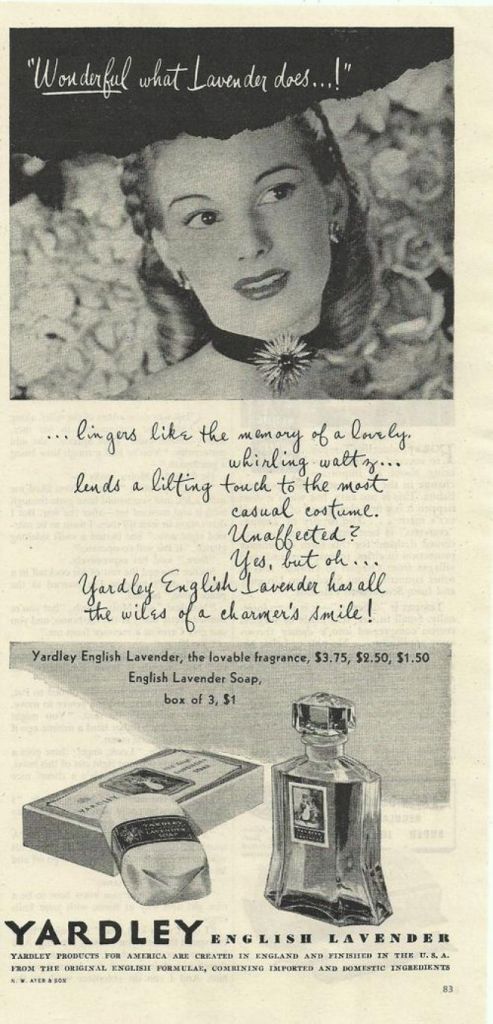 "Wonderful what Lavender does...!"
... lingers like the memory of a lovely,
whirling waltz...
lends a lilting touch to the most
casual costume.
Unaffected?
Yes, but oh...
Yardley English Lavender has all
the wiles of a charmer's smile!
Yardley English Lavender, the lovable fragrance, $3.75, $2.50, $1.50
English Lavender Soap,
box of 3, $1
YARDLEY
YARDLEY
LAVENDER
SOAP
YARDLEY ENGLISH LAVENDER
YARDLEY PRODUCTS FOR AMERICA ARE CREATED IN ENGLAND AND FINISHED IN THE U. S. A.
FROM THE ORIGINAL ENGLISH FORMULAE, COMBINING IMPORTED AND DOMESTIC INGREDIENTS
N. W. AYER & SON
83